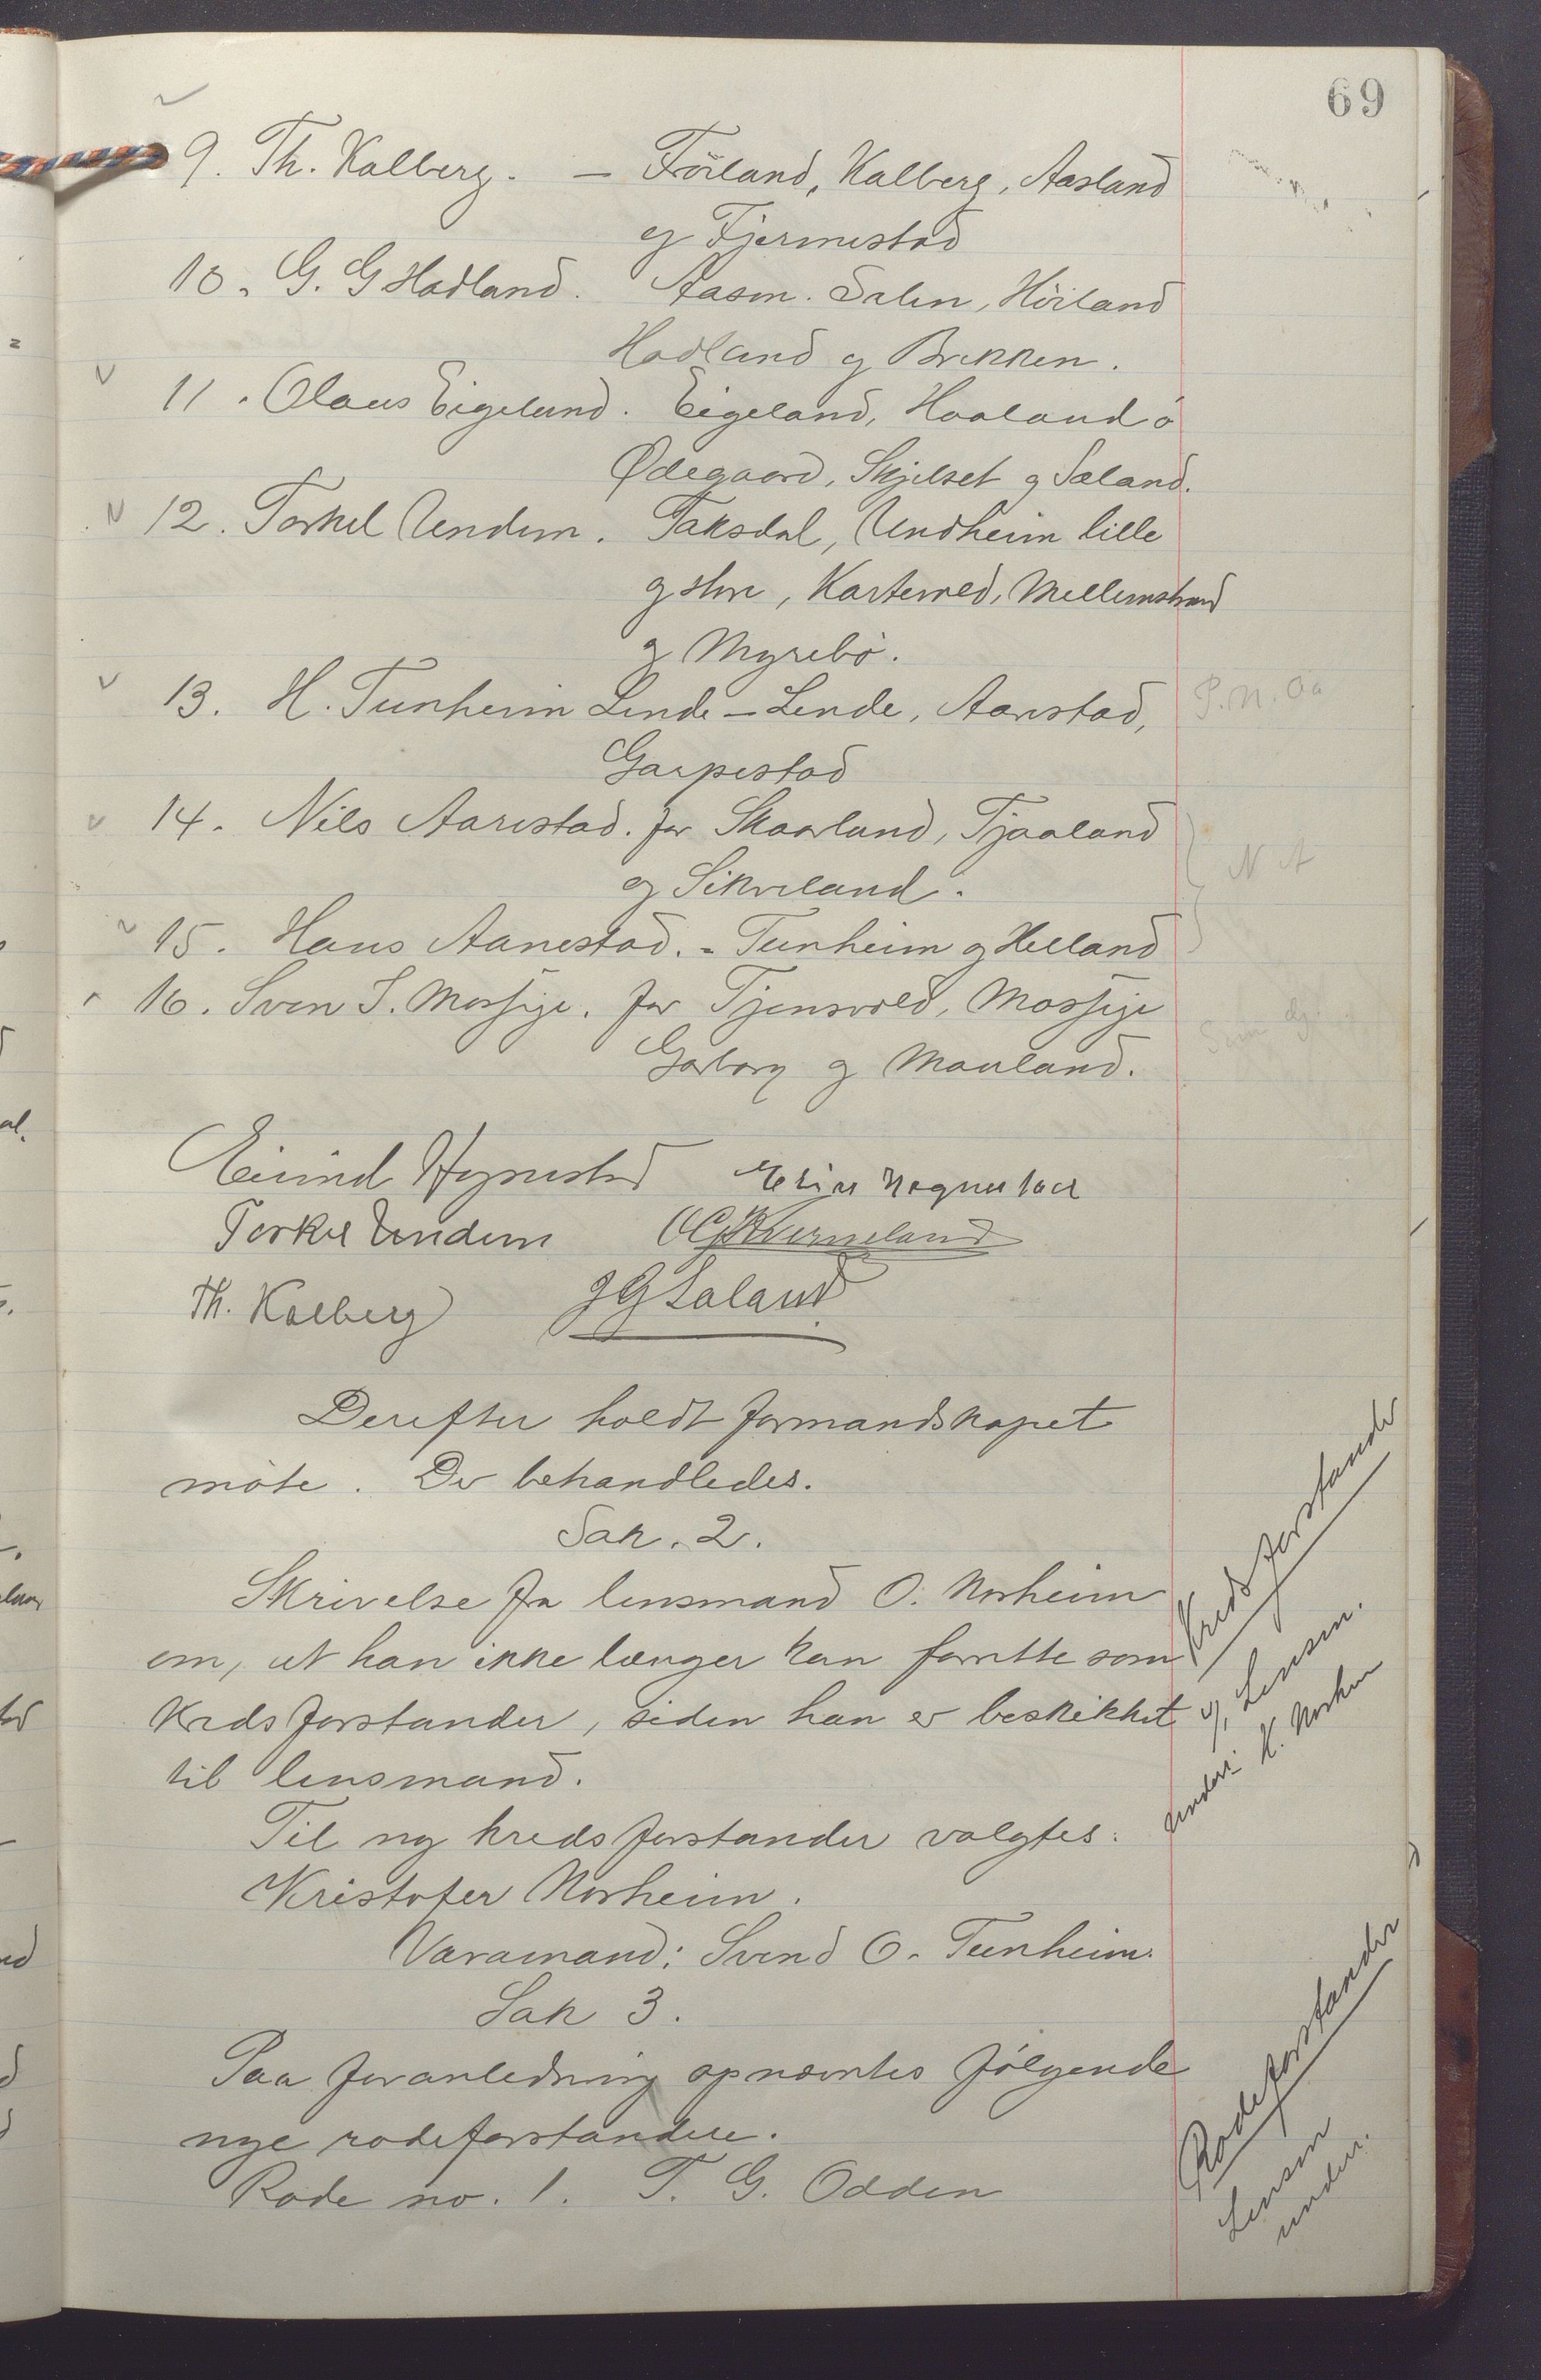 69
9. Th. Kalberg. – Förland, Kalberg, Aasland
og Fjermestad
10. G. G Hadland. Aasen. Salen, Höiland
Hadland og Brekken.
11. Olaus Eigeland. Eigeland, Haaland ö
Ødegaard, Skjelset og Sæland.
12. Torkel Undem. Taksdal, Undheim lille
og store, Kartevold, Mellemstrand
og Myrebö.
13. H. Tunheim Lende – Lende, Aanestad,
P. N. Aa
Garpestad
14. Nils Aarestad. for Skaarland, Tjaaland
N A
og Sikveland.
15. Hans Aanestad. – Tunheim og Helland
16. Sven S. Mossige. for Tjensvold, Mossige
Garborg og Mauland.
Eivind Hognestad
Torkel Undem OG Kverneland
Th. Kalberg JG Sæland
Derefter holdt formandskapet
möte. Der behandledes.
Sak. 2.
Skrivelse fra lensmand O. Norheim
om, at han ikke længer kan forrette som
kredsforstander, siden han er beskikket
til lensmand.
Kredsforstander
Lensm.
underr. K. Norheim
Til ny kredsforstander valgtes:
Kristofer Norheim.
Varamand: Svend O. Tunheim.
Sak 3.
Paa foranledning opnævntes fölgende
nye rodeforstandere.
Rode no. 1. T. G. Odden
Rodeforstander
Lensm
underr.